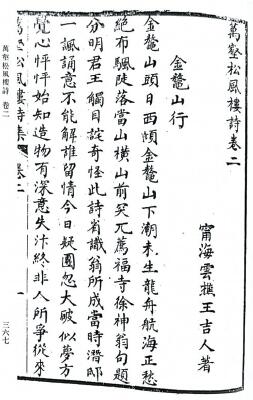 萬壑松風樓詩卷二
甯海雲樵王吉人著
金鰲山行
金鰲山頭日西傾金鰲山下潮未生龍舟航海正愁
絕布颿陡落當山橫山前突兀薦福寺徐神翁句題
分明君王觸目詫奇怪此詩省識翁所成當時潛邸
一諷誦意不能解誰留情今日疑團忽大破似夢方
覺心怦怦始知造物有深意失汴終非人所爭從來
萬壑松風樓詩集 卷二 一
萬壑松風樓詩 卷二
三六七